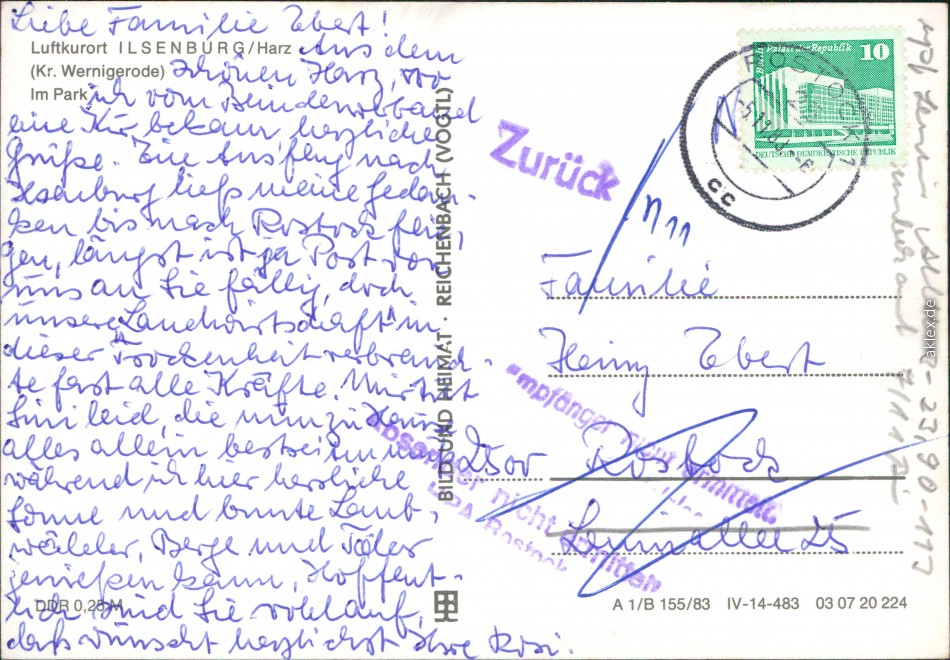 Liebe Familie Ebert!
Luftkurort ILSENBURG/Harz
(Kr. Wernigerode)
Im Park
Aus dem
schönen Harz, wo
ich vom Blindenverband
eine Kur bekam herzliche
Grüße. Ein Ausflug nach
Ilsenburg ließ meine Gedan-
ken bis nach Rostock flie-
gen, längst ist ja Post von
uns an Sie fällig, doch
unsere Landwirtschaft in
dieser Trockenheit verbrauch-
te fast alle Kräfte. Mir tut
leid, die nun zu Hause
alles allein
während ich hier herrliche
Sonne und bunte Laub-
wälder, Berge und Täler
genießen kann, Hoffent-
lich sind Sie wohlauf,
das wünscht herzlichst Ihre Rosi.
DDR 0,25 M
BILD UND HEIMAT · REICHENBACH (VOGTL)
Zurück
Palast der Republik 10
DEUTSCHE DEMOKRATISCHE REPUBLIK
ROSTOCK 1
cc
Familie
Heinz Ebert
2500 Rostock
Leninallee 25
Empfänger nicht ermittelt
Absender nicht ermittelt
Rostock
A 1/B 155/83 IV-14-483 03 07 20 224
aklex.de